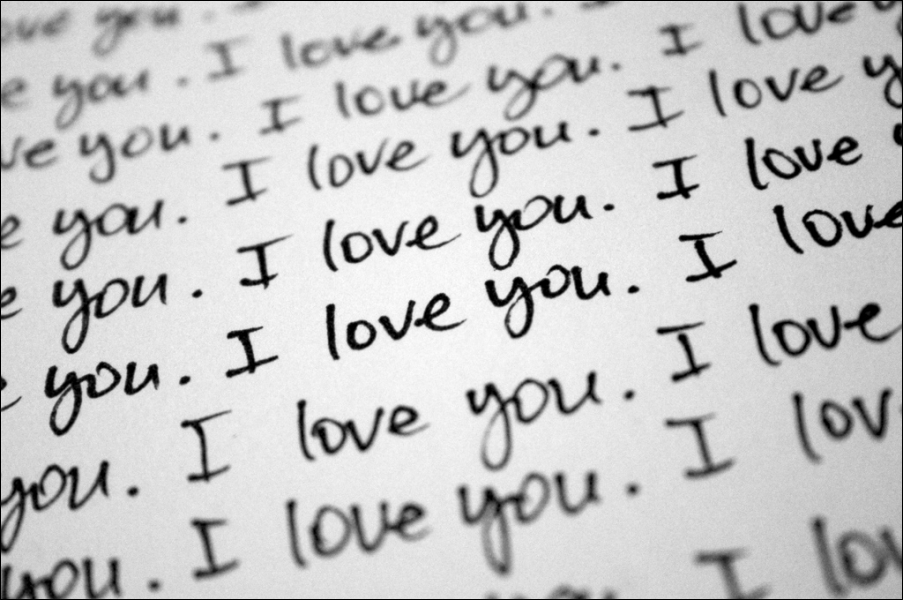 love you.
you. I love you.
ve you. I love you. I love
e you. I love you. I love y
e you. I love you. I love
you. I love you. I love
you. I love you. I love
you. I love you. I lov
you. I love you. I lov